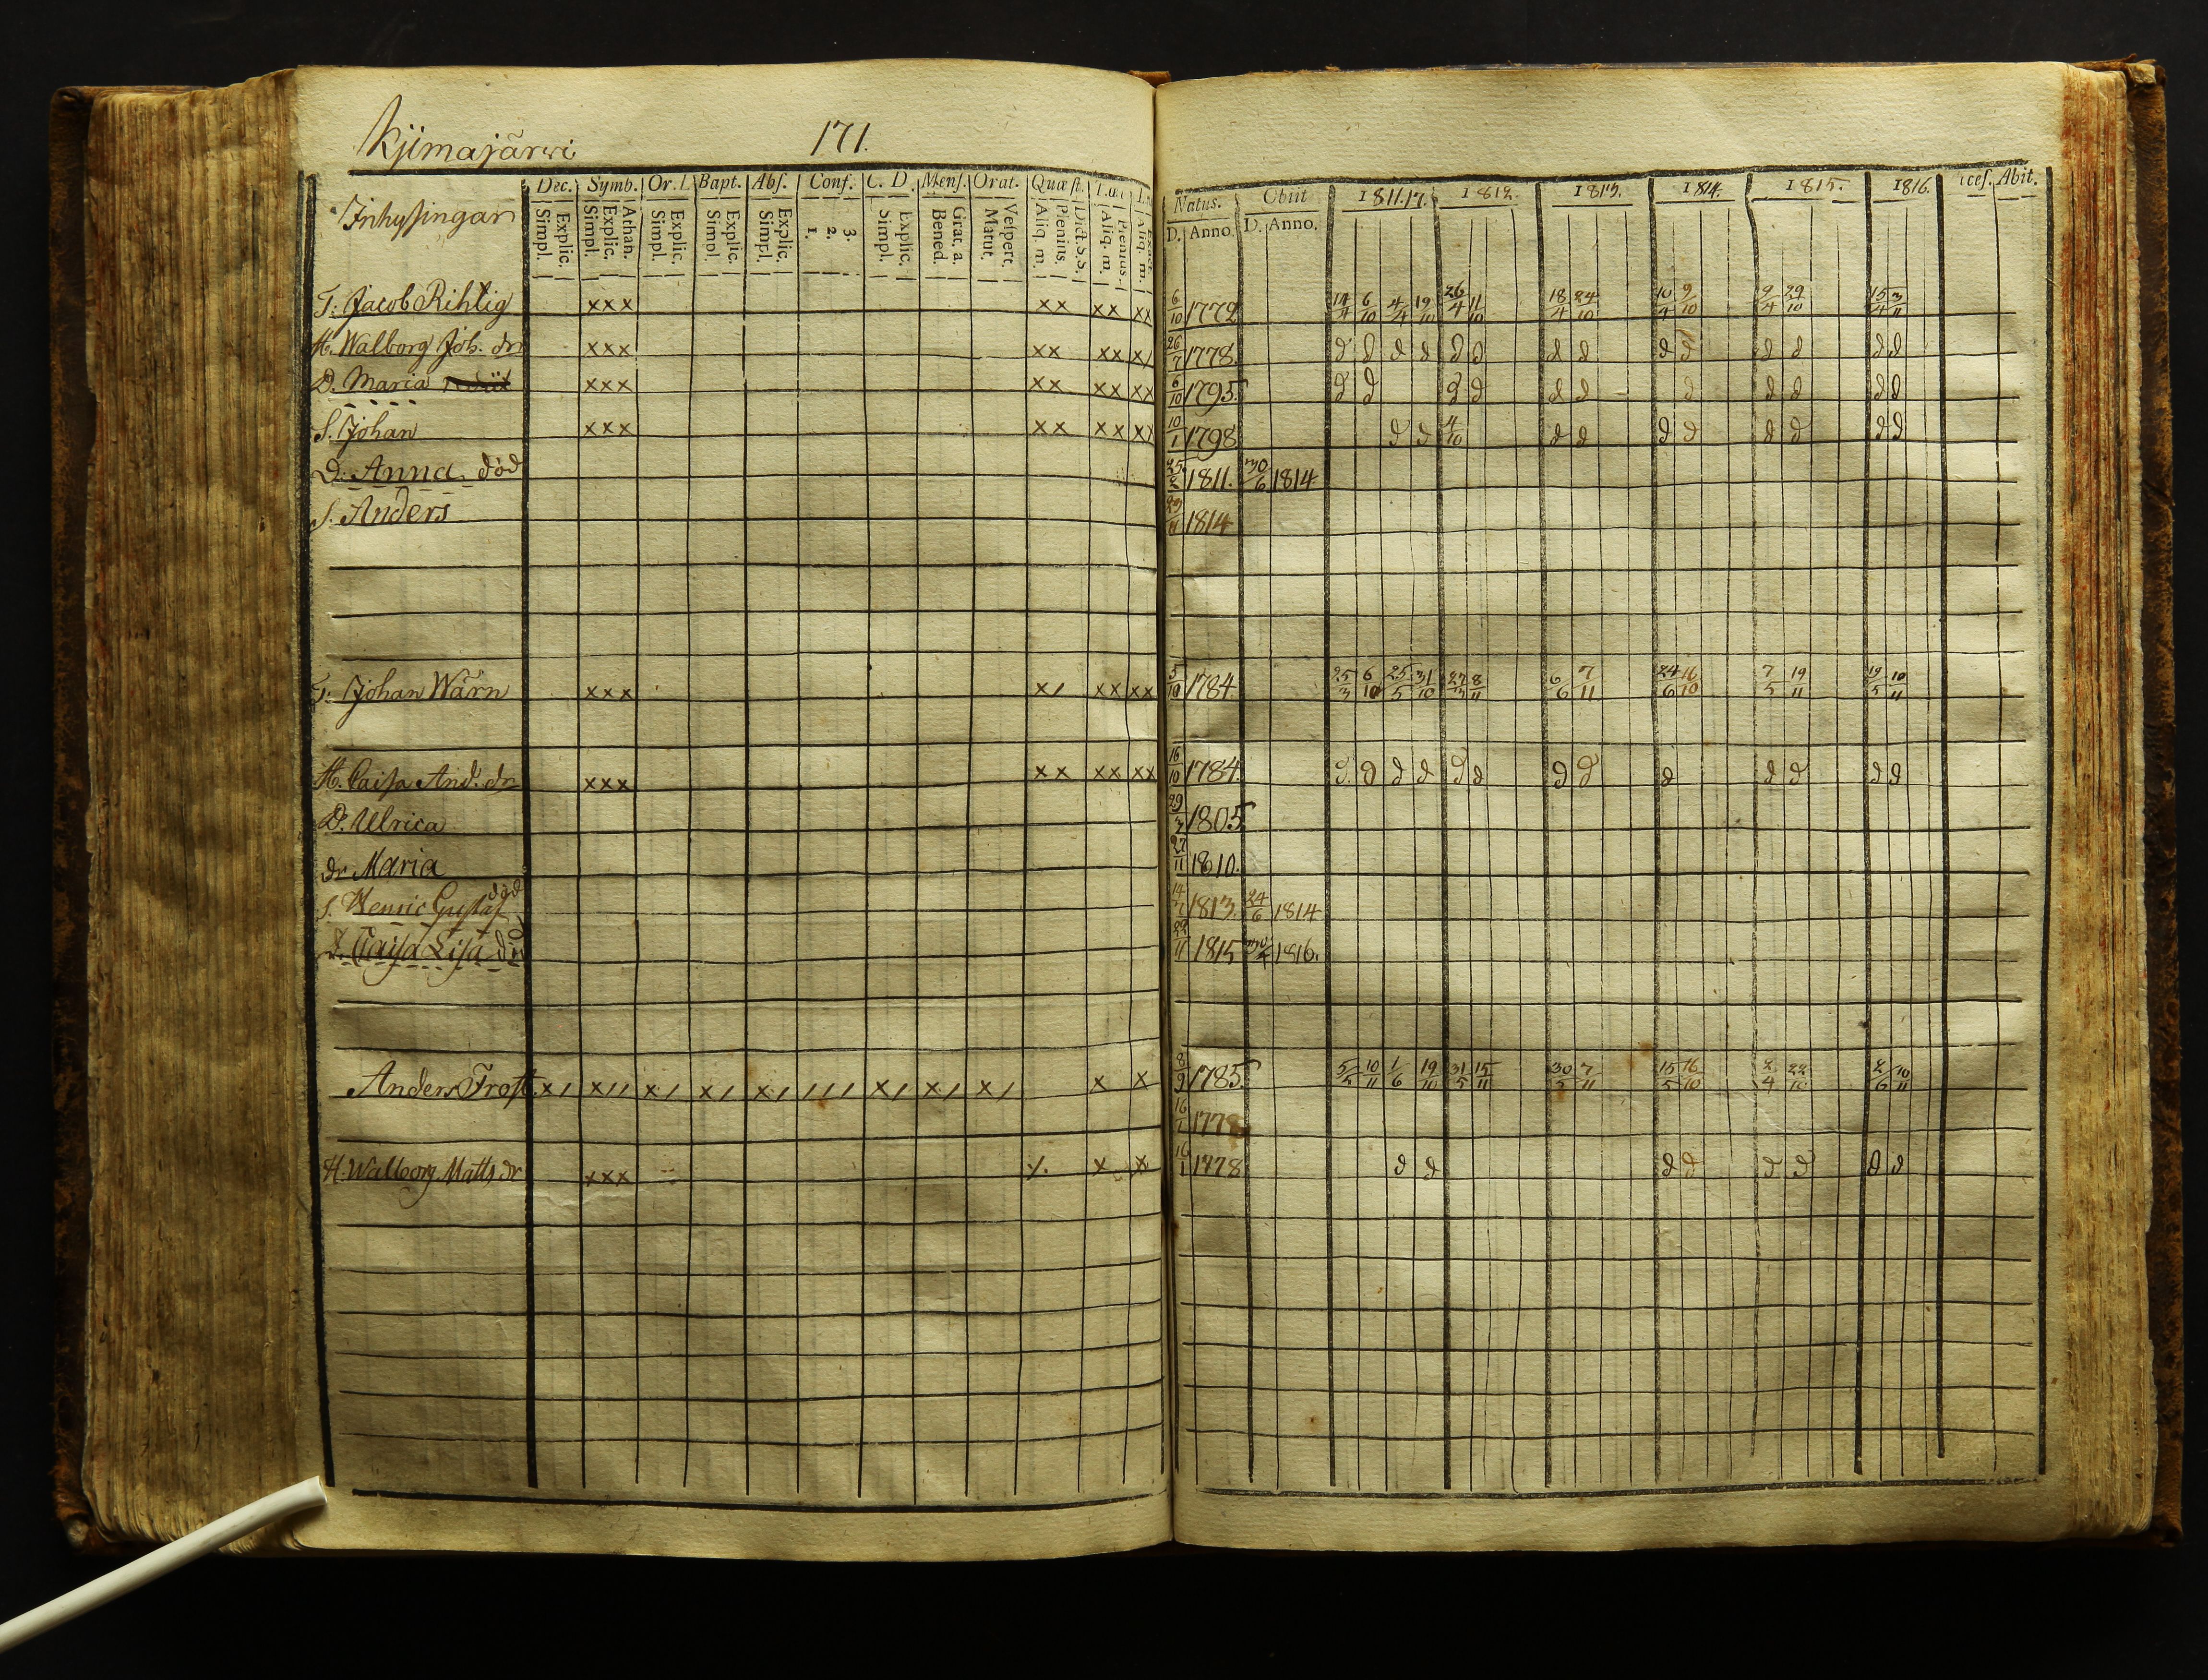 Kjimajärvi 171.
Inhysingar Dec. Symb. Or. L. Bapt. Abs. Conf. C. D. Mens. Orat. Quæst.
Simpl. Explic. Simpl. Explic. Athan. Simpl. Explic. Simpl. Explic. Simpl. Explic. 1. 2. 3. Simpl. Explic. Bened. Grat. a. Matut. Vespert. Aliq. m. Plenius. Dict. S. S. Aliq. m. Plenius. Aliq. m.
Natus. Obiit 1811.17. 1812. 1813. 1814. 1815. 1816. Abit.
D. Anno. D. Anno.
T. Jacob Rihtig xxx xx xx xx 6/10 1772 14/4 6/10 4/4 19/10 26/4 11/10 18/4 24/10 10/4 9/10 9/4 29/10 15/4 3/11
H. Walborg Joh. dr xxx xx xx x/ 26/7 1778 d d d d d d d d d d d d d d
D. Maria xxx xx xx xx 6/10 1795. d d d d d d d d d d d
S. Johan xxx xx xx xx 10/1 1798 d d 4/10 d d d d d d d d
D. Anna död 25/2 1811. 30/6 1814
S. Anders 23/11 1814
T. Johan Wärn xxx x/ xx xx 5/10 1784 25/3 6/10 25/5 31/10 27/3 8/11 6/6 7/11 24/6 16/10 7/5 19/11 19/5 10/11
H. Caisa And. dr xxx xx xx xx 16/10 1784. d d d d d d d d d d d d d
D. Ulrica 29/3 1805
dr Maria 27/11 1810.
S. Henric Gustaf död 14/7 1813. 24/6 1814
D. Caisa Lisa död 22/11 1815 1816.
Anders Frost. x/ x// x/ x/ x/ /// x/ x/ x/ x x 8/9 1785 5/5 10/11 1/6 19/10 31/5 15/11 30/5 7/11 15/5 16/10 2/4 22/10 2/6 10/11
16/1 1778
H. Walborg Matts dr xxx x x 16/1 1778 d d d d d d d d